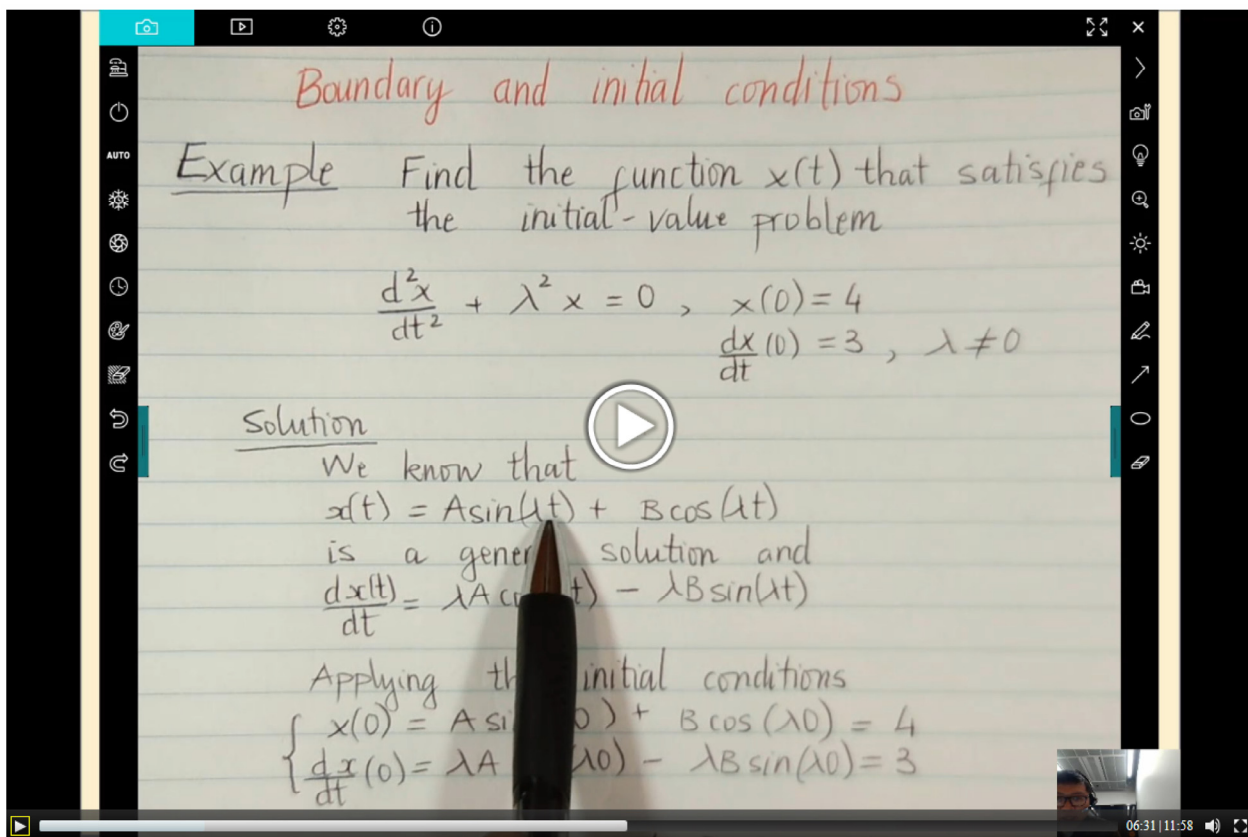 AUTO
Boundary and initial conditions
Example Find the function x(t) that satisfies
the initial-value problem
d²x/dt² + λ²x = 0, x(0) = 4
dx/dt (0) = 3, λ ≠ 0
Solution
We know that
x(t) = A sin(λt) + B cos(λt)
is a solution and
dx(t)/dt = λA t) - λB sin(λt)
Applying initial conditions
x(0) = A 0) + B cos(λ0) = 4
dx/dt (0) = λA λ0) - λB sin(λ0) = 3
06:31|11:58